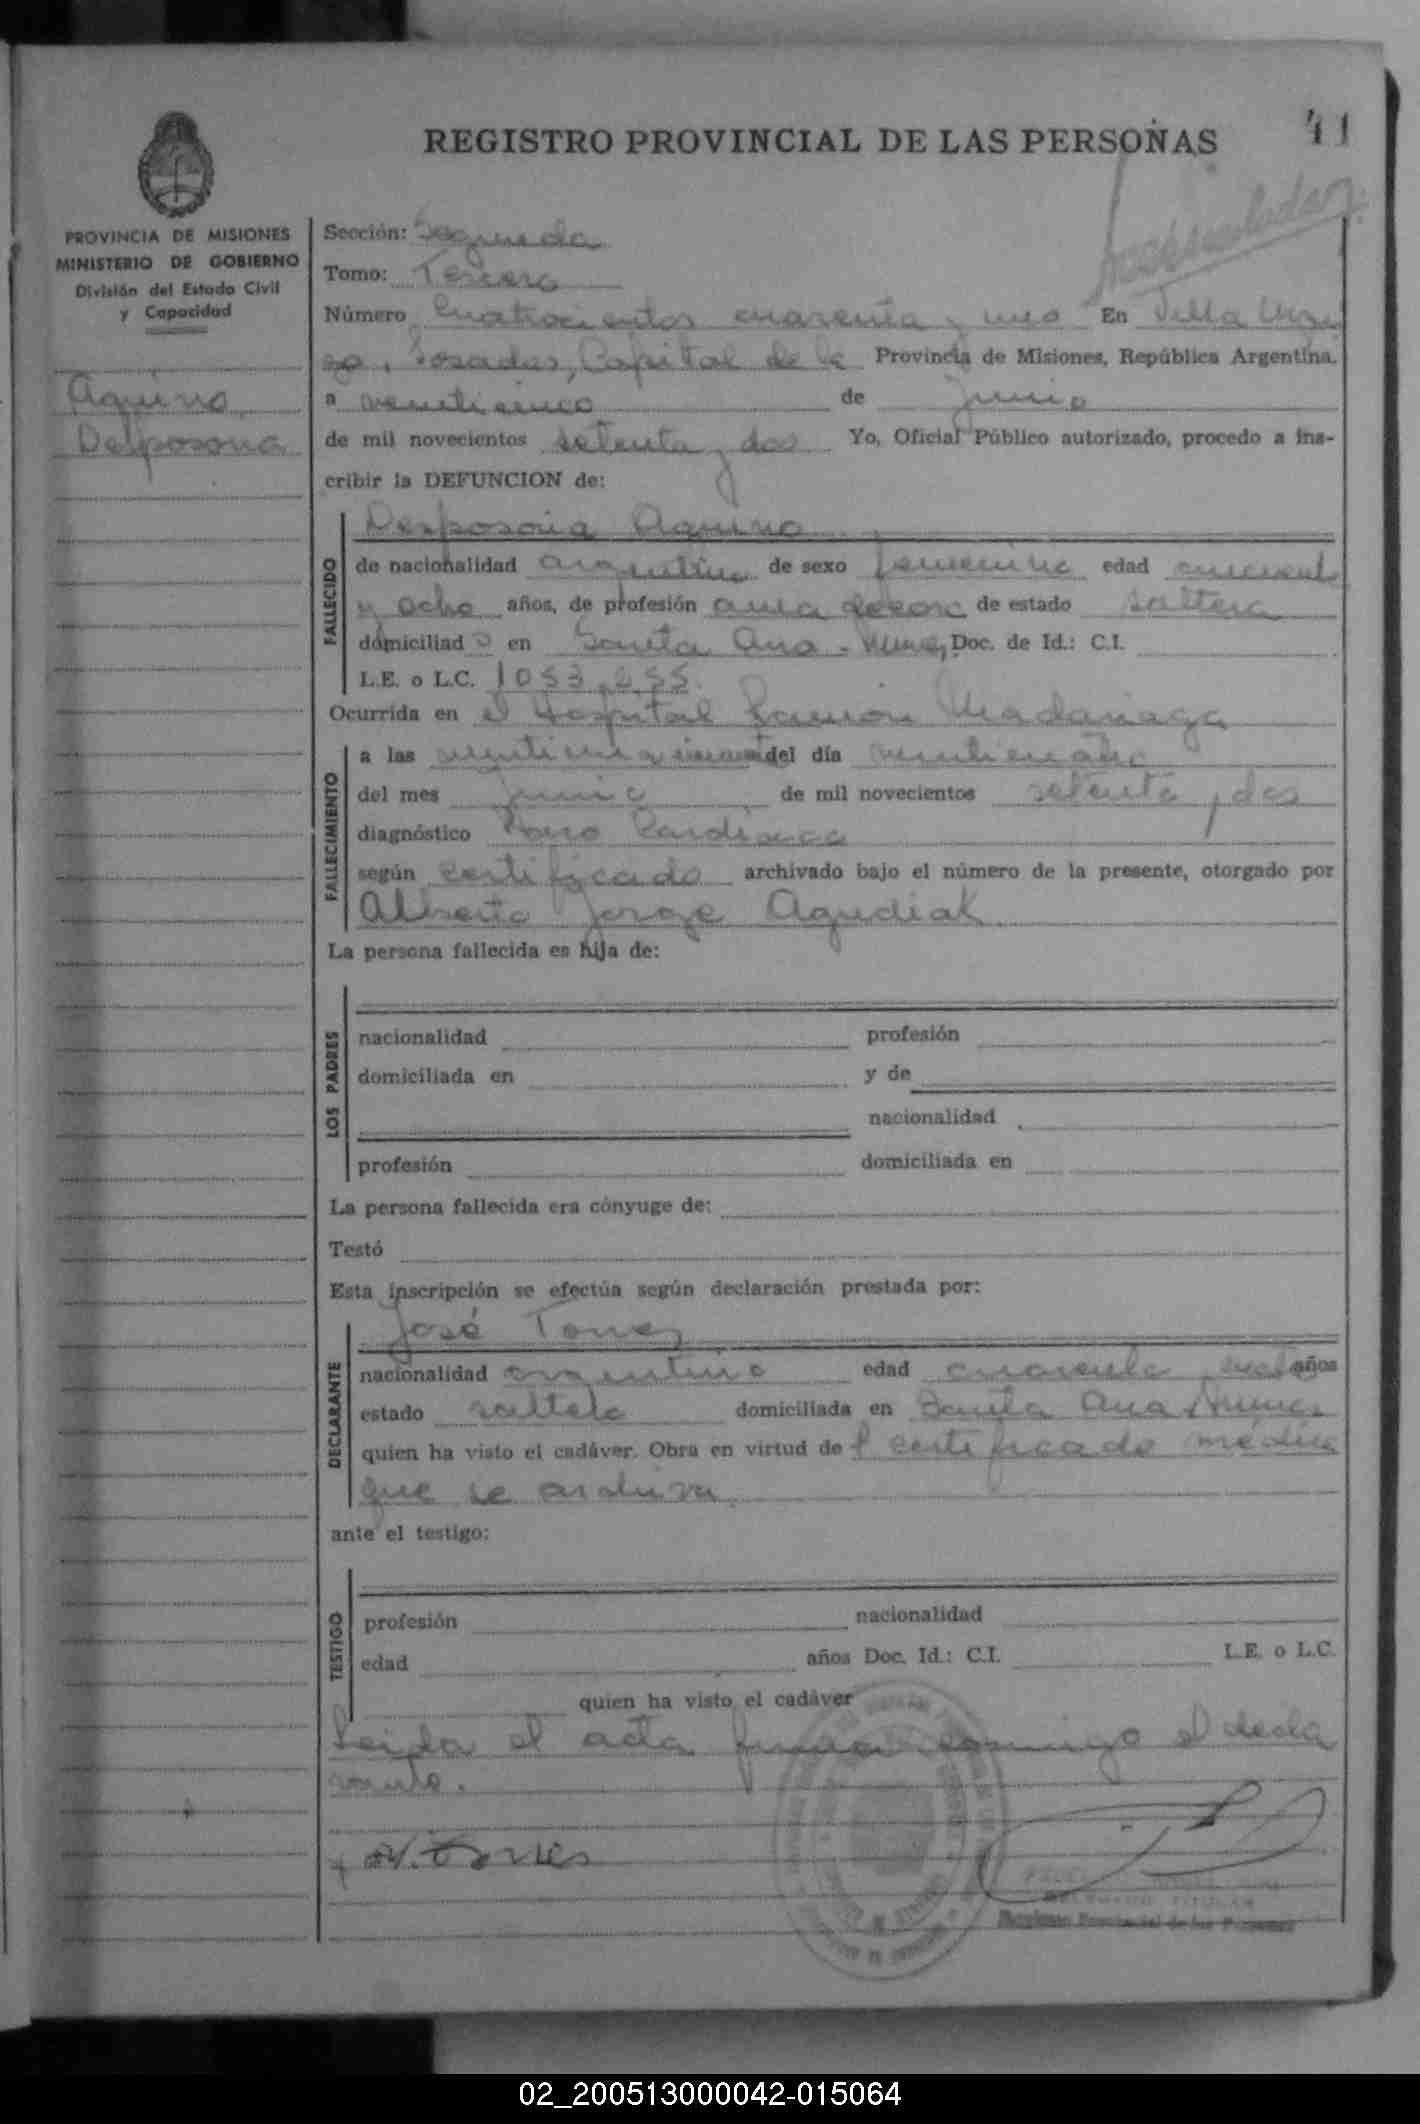 41
REGISTRO PROVINCIAL DE LAS PERSONAS
PROVINCIA DE MISIONES
MINISTERIO DE GOBIERNO
División del Estado Civil
y Capacidad
Aquino
Desposoria
Sección: Segunda
Tomo: Tercero
Número Cuatrocientos cuarenta y uno En Villa Urqui
za, Posadas, Capital de la Provincia de Misiones, República Argentina,
a veinticinco de junio
de mil novecientos setenta y dos Yo, Oficial Público autorizado, procedo a ins-
cribir la DEFUNCION de:
FALLECIDO
Desposoria Aquino
de nacionalidad argentina de sexo femenino edad cincuenta
y ocho años, de profesión ama de casa de estado soltera
domiciliad o en Santa Ana - Mnes, Doc. de Id.: C.I.
L.E. o L.C. 1053.255.
Ocurrida en el Hospital Ramón Madariaga
FALLECIMIENTO
a las del día veinticuatro
del mes junio de mil novecientos setenta y dos
diagnóstico Paro Cardíaco
según certificado archivado bajo el número de la presente, otorgado por
Alberto Jorge Agudiak
La persona fallecida es hija de:
LOS PADRES
nacionalidad profesión
domiciliada en y de
nacionalidad
profesión domiciliada en
La persona fallecida era cónyuge de:
Testó
Esta inscripción se efectúa según declaración prestada por:
DECLARANTE
José Torres
nacionalidad argentino edad cuarenta años
estado soltero domiciliada en Santa Ana, Mnes
quien ha visto el cadáver. Obra en virtud de l certificado médico
que se archiva.
ante el testigo:
TESTIGO
profesión nacionalidad
edad años Doc. Id.: C.I. L.E. o L.C.
quien ha visto el cadáver
Leida el acta firma conmigo el decla
rante.
Torres
Registro Provincial de las Personas
02_200513000042-015064